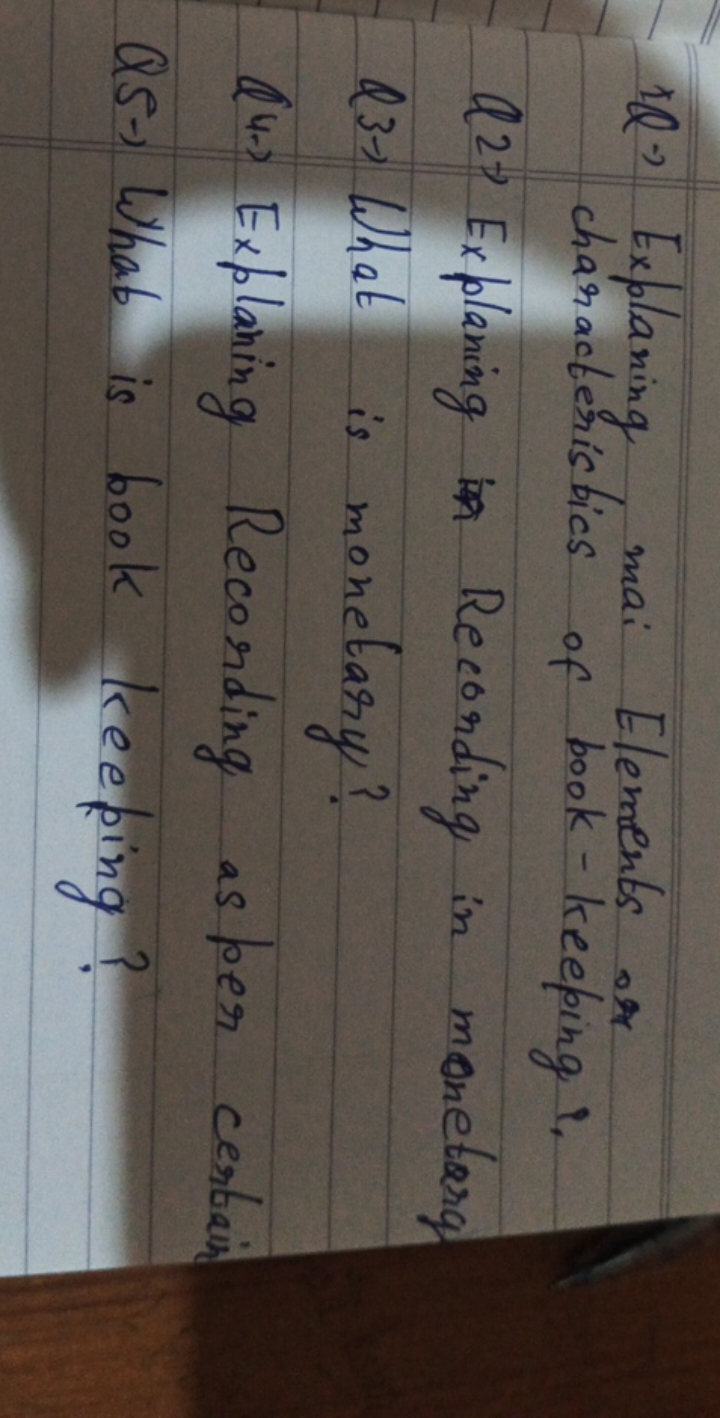 1Q → Explaning mai Elements or
characteristics of book-keeping?.
Q2 → Explaning Recording in monetary
Q3 → What is monetary?
Q4 → Explaning Recording as per certain
Q5 → What is book keeping?